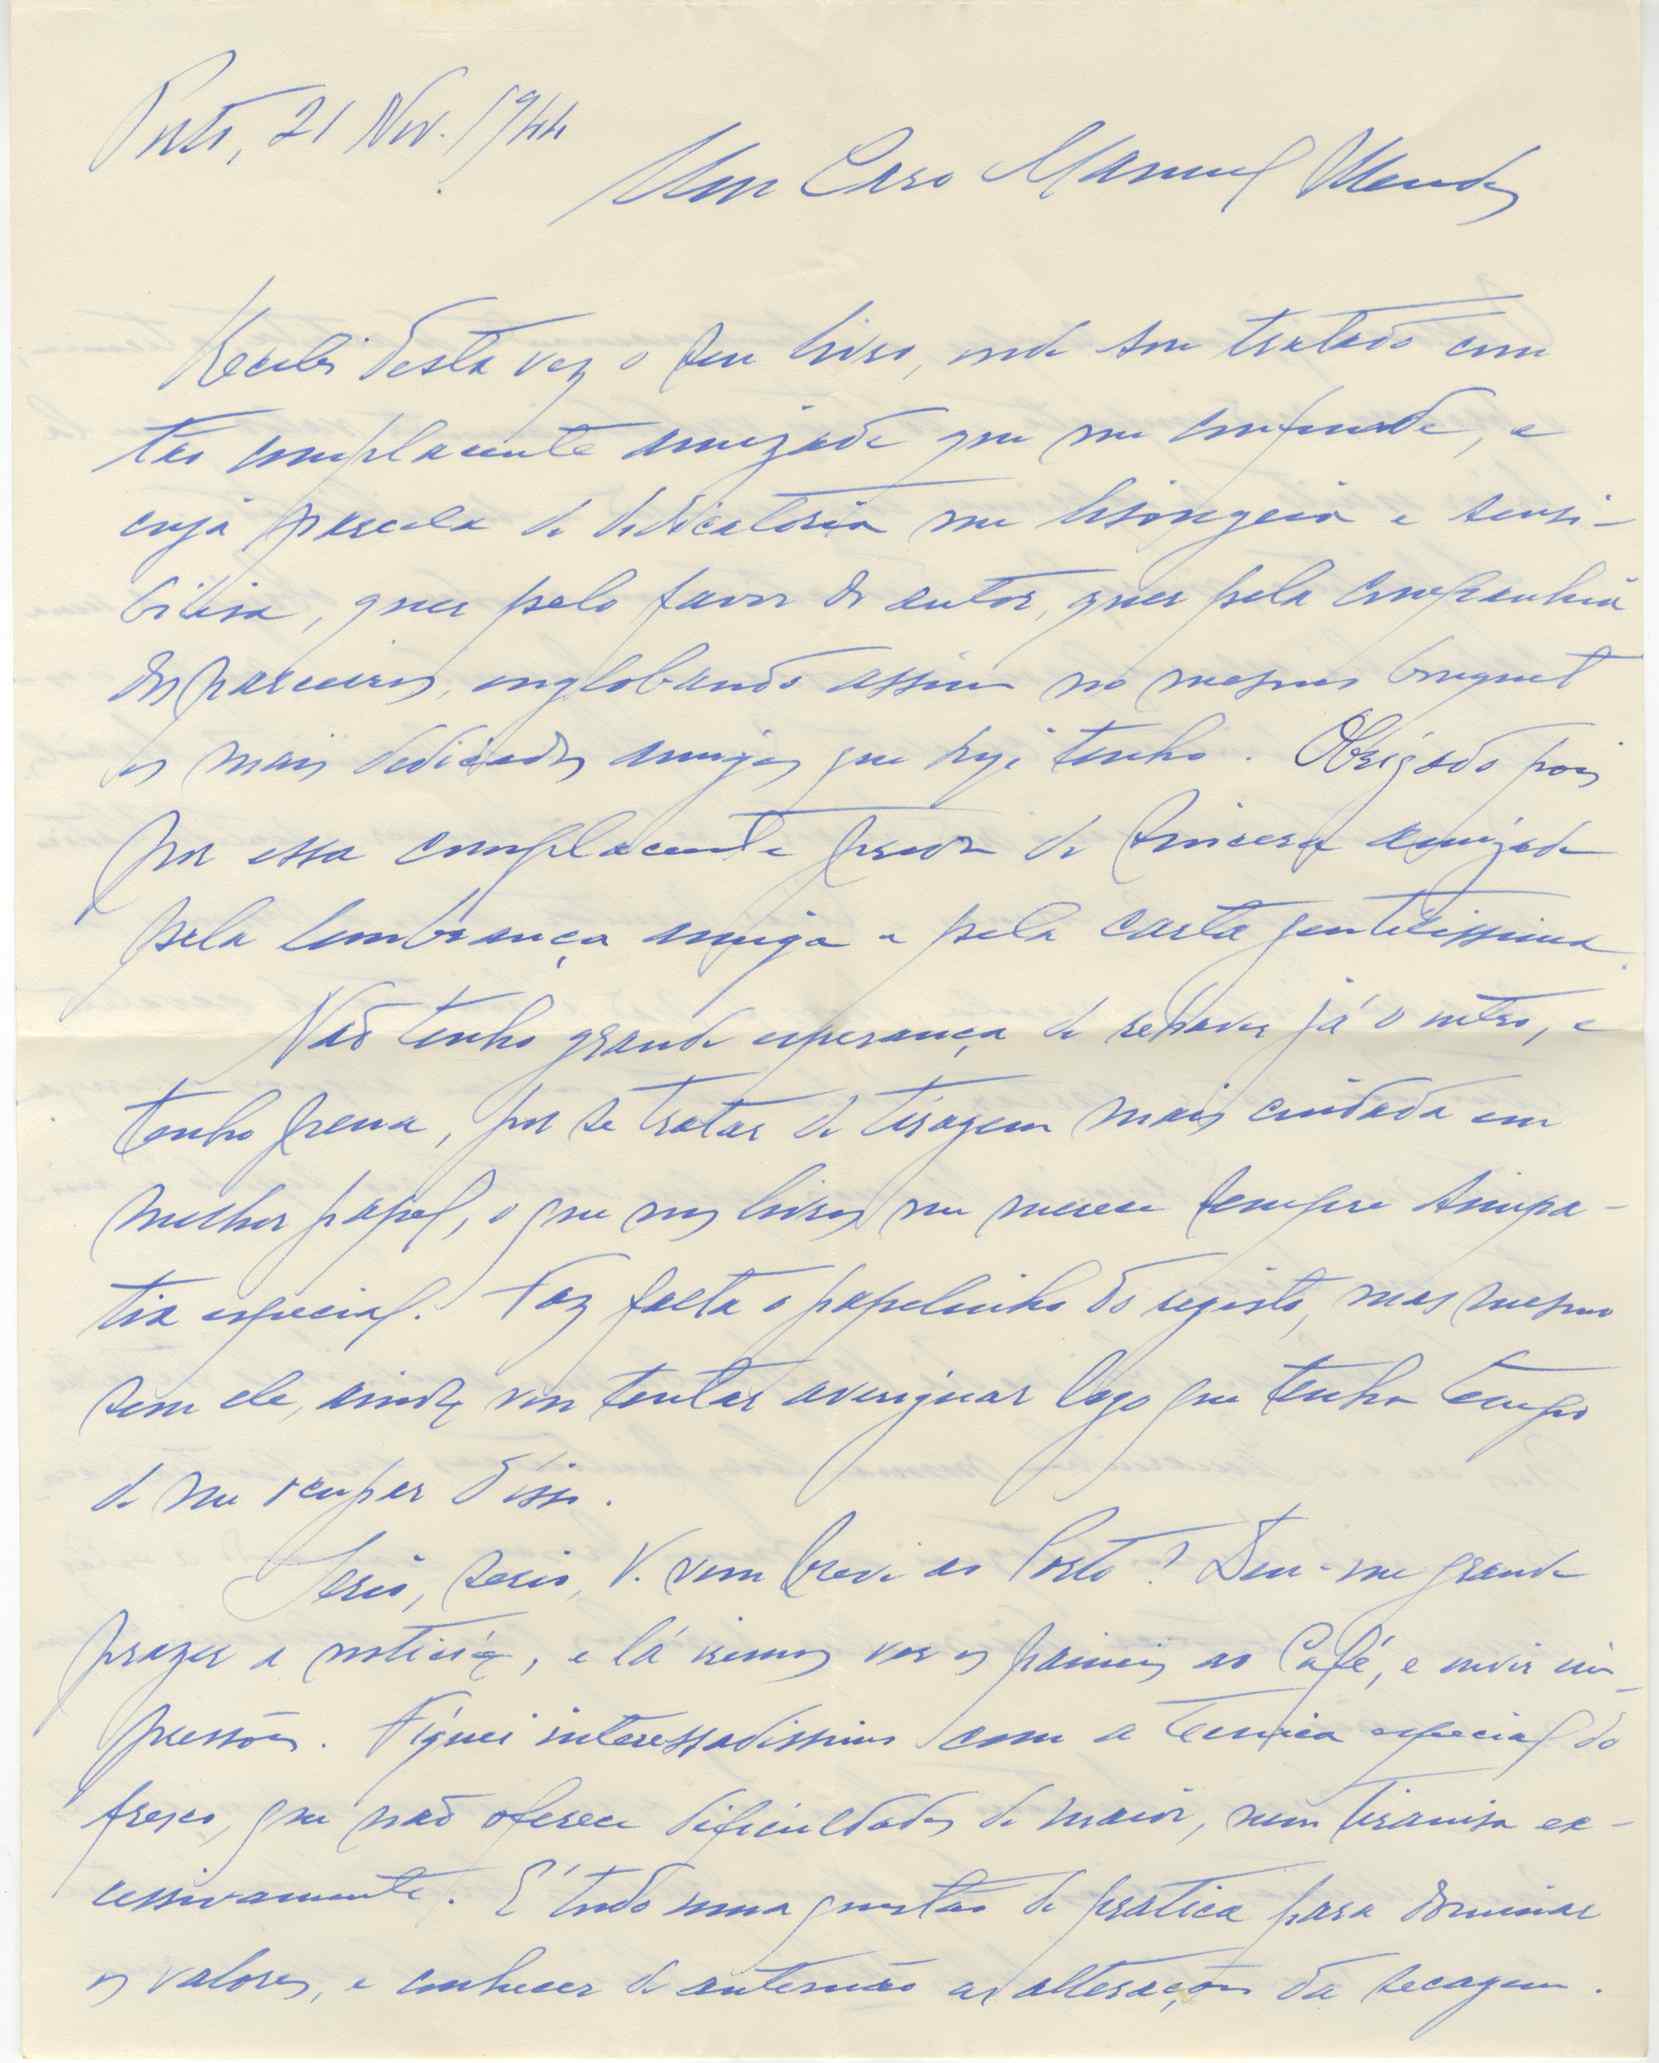 Porto, 21 Nov. 1944
Meu Caro Manuel Mendes
Recebi desta vez o seu livro, onde sou tratado com
tão complacente amizade que me confunde, e
cuja parcela de dedicatoria me lisongeia e sensi-
bilisa, quer pelo favor do autor, quer pela companhia
dos parceiros, englobando assim no mesmo bouquet
os mais dedicados amigos que hoje tenho. Obrigado pois
por essa complacente prova de sincera amizade
pela lembrança amiga e pela carta gentilissima.
Não tenho grande esperança de rehaver já o outro, e
tenho pena, por se tratar de tiragem mais cuidada em
melhor papel, o que nos livros me merece sempre simpa-
tia especial. Faz falta o papelinho do registo, mas mesmo
sem ele, ainda vou tentar averiguar logo que tenha tempo
de me ocupar disso.
Serio, serio, V. vem breve ao Porto? Deu-me grande
prazer a noticia, e lá iremos ver os paineis ao Café, e ouvir im-
pressões. Fiquei interessadissimo com a tecnica especial do
fresco, que não oferece dificuldades de maior, nem tiranisa ex-
cessivamente. É tudo uma questão de pratica para dominar
os valores, e conhecer de antemão as alterações da secagem.